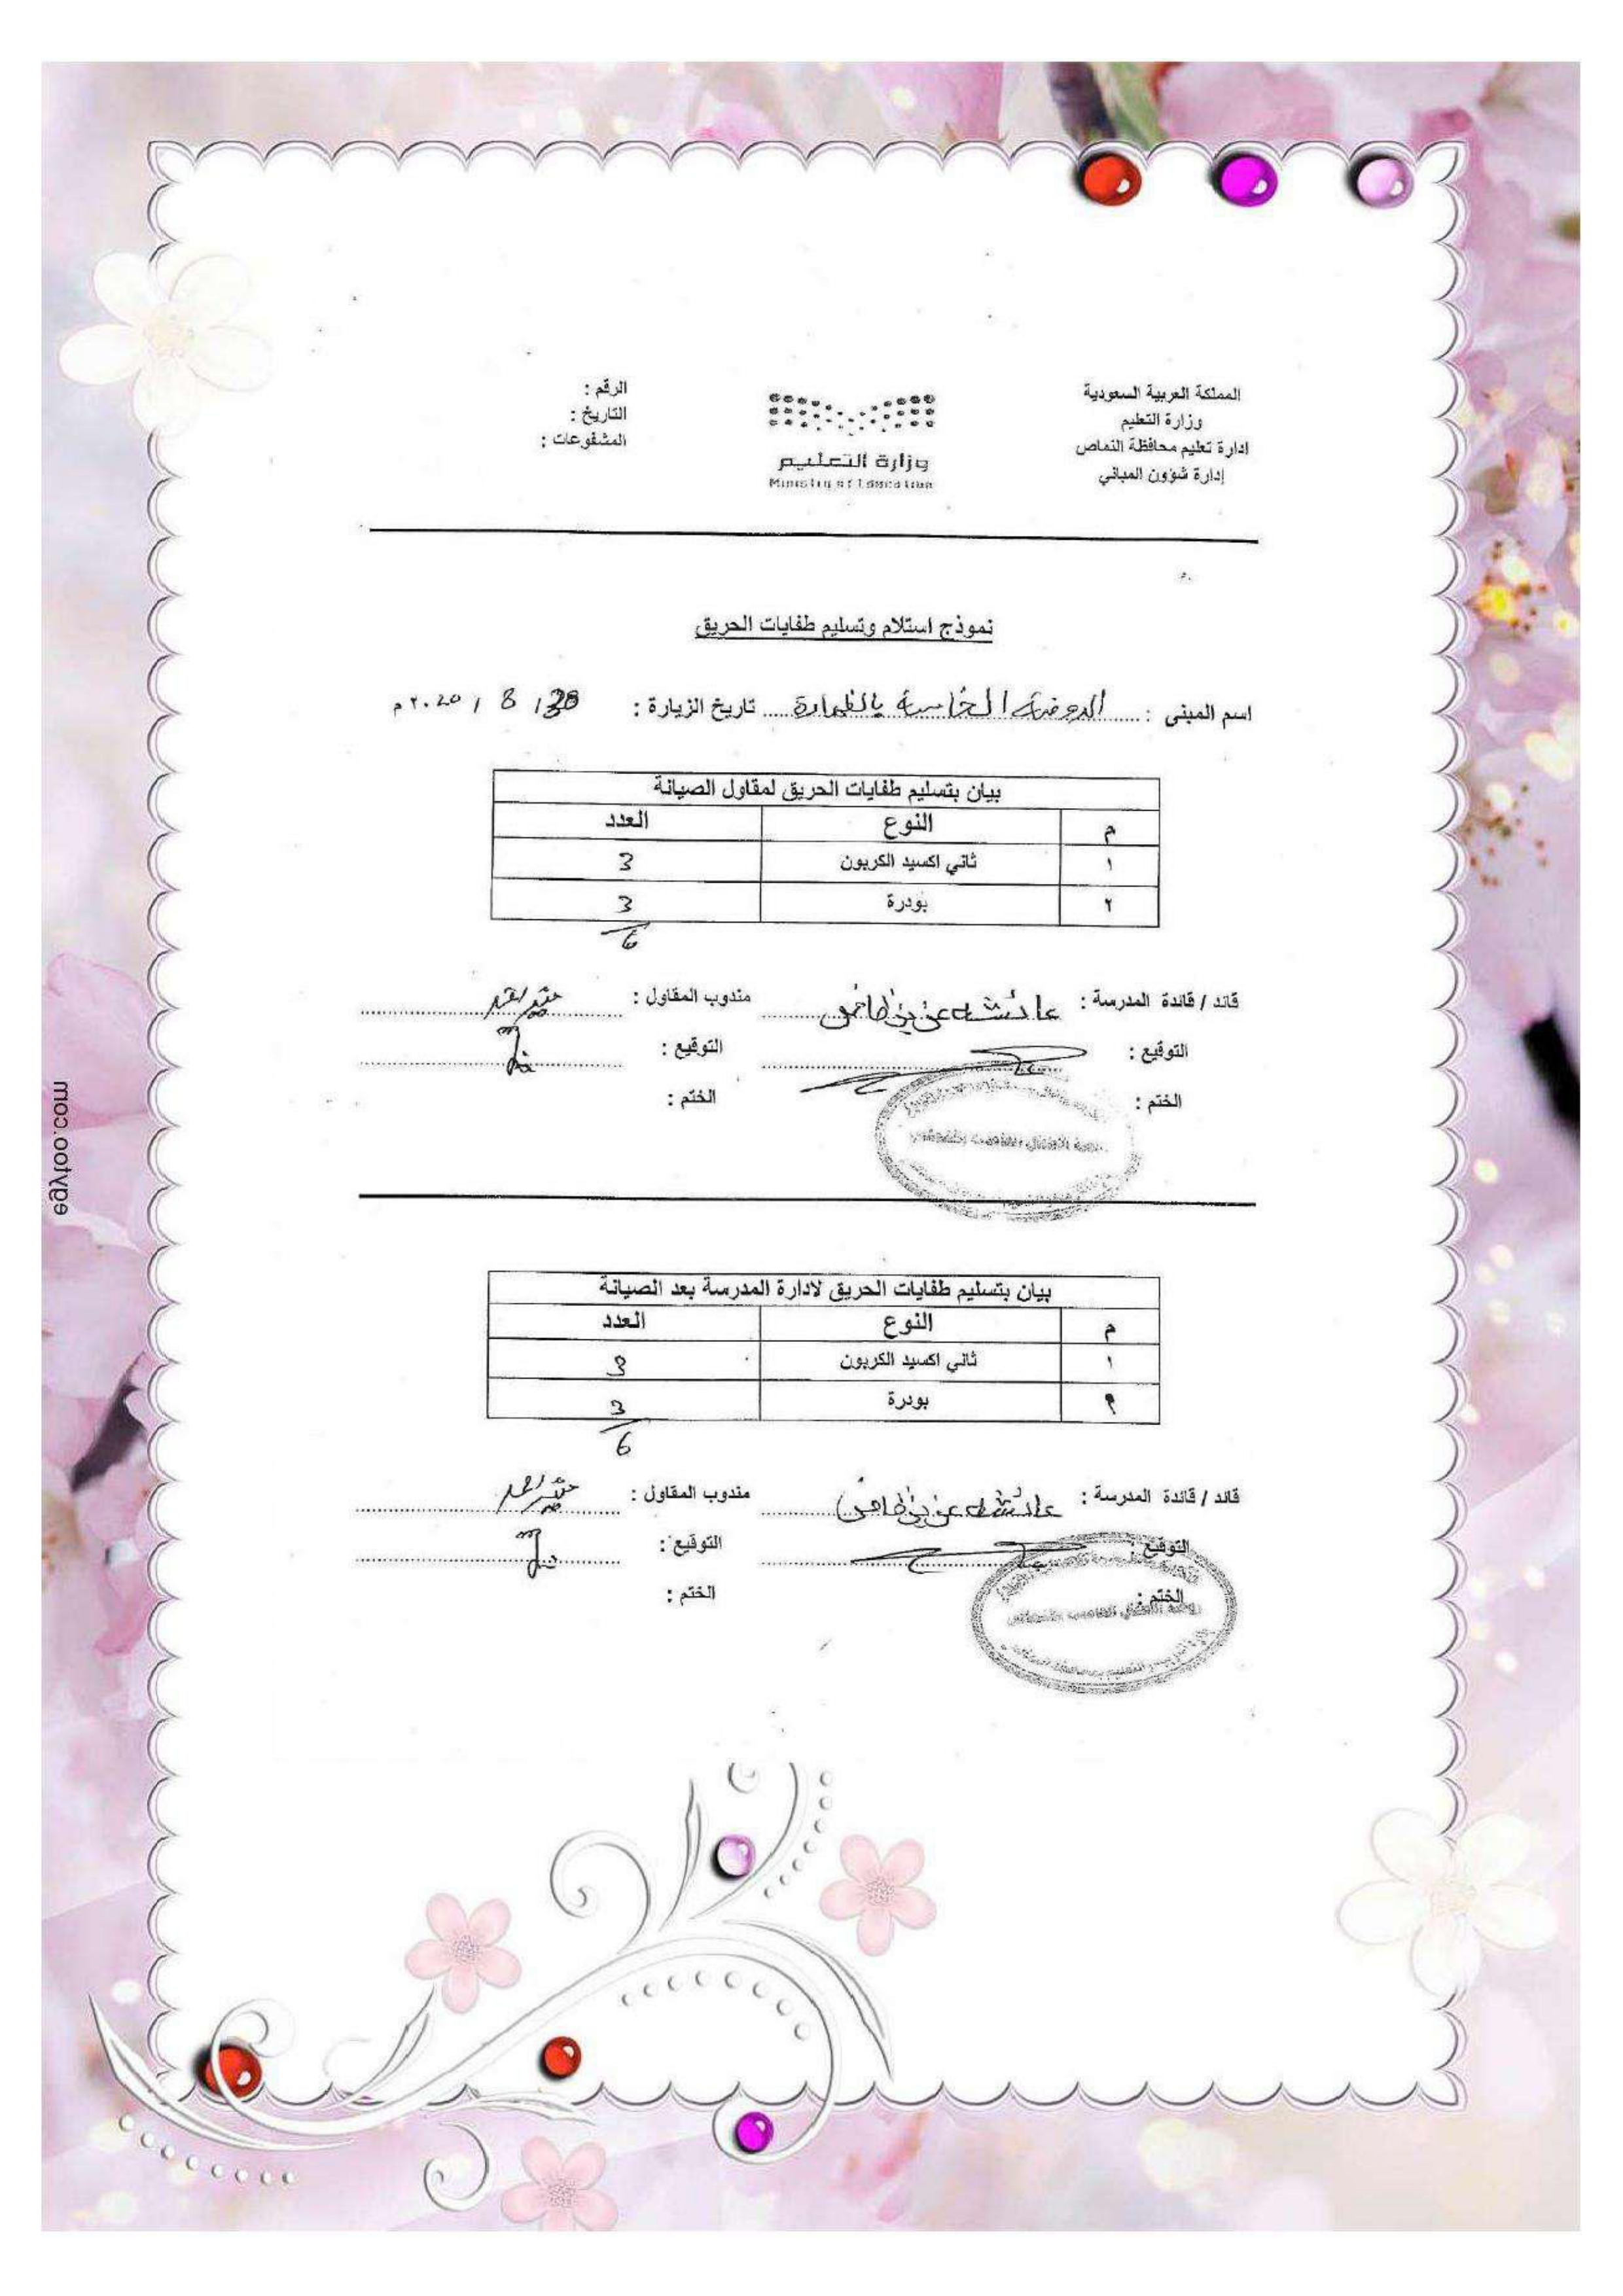 المملكة العربية السعودية
وزارة التعليم
ادارة تعليم محافظة النماص
إدارة شؤون المباني
وزارة التعليم
Ministry of Education
الرقم :
التاريخ :
المشفوعات :
نموذج استلام وتسليم طفايات الحريق
اسم المبنى : الروضة الخامسة بالظهارة تاريخ الزيارة : 8 / ٢٠20 م
بيان بتسليم طفايات الحريق لمقاول الصيانة
م النوع العدد
١ ثاني اكسيد الكربون 3
٢ بودرة 3
6
قائد / قائدة المدرسة : عائشه عزيز مندوب المقاول :
التوقيع : التوقيع :
الختم : الختم :
بيان بتسليم طفايات الحريق لادارة المدرسة بعد الصيانة
م النوع العدد
١ ثاني اكسيد الكربون 3
٢ بودرة 3
6
قائد / قائدة المدرسة : عائشه عزيز مندوب المقاول :
التوقيع : التوقيع :
الختم : الختم :
egytoo.com